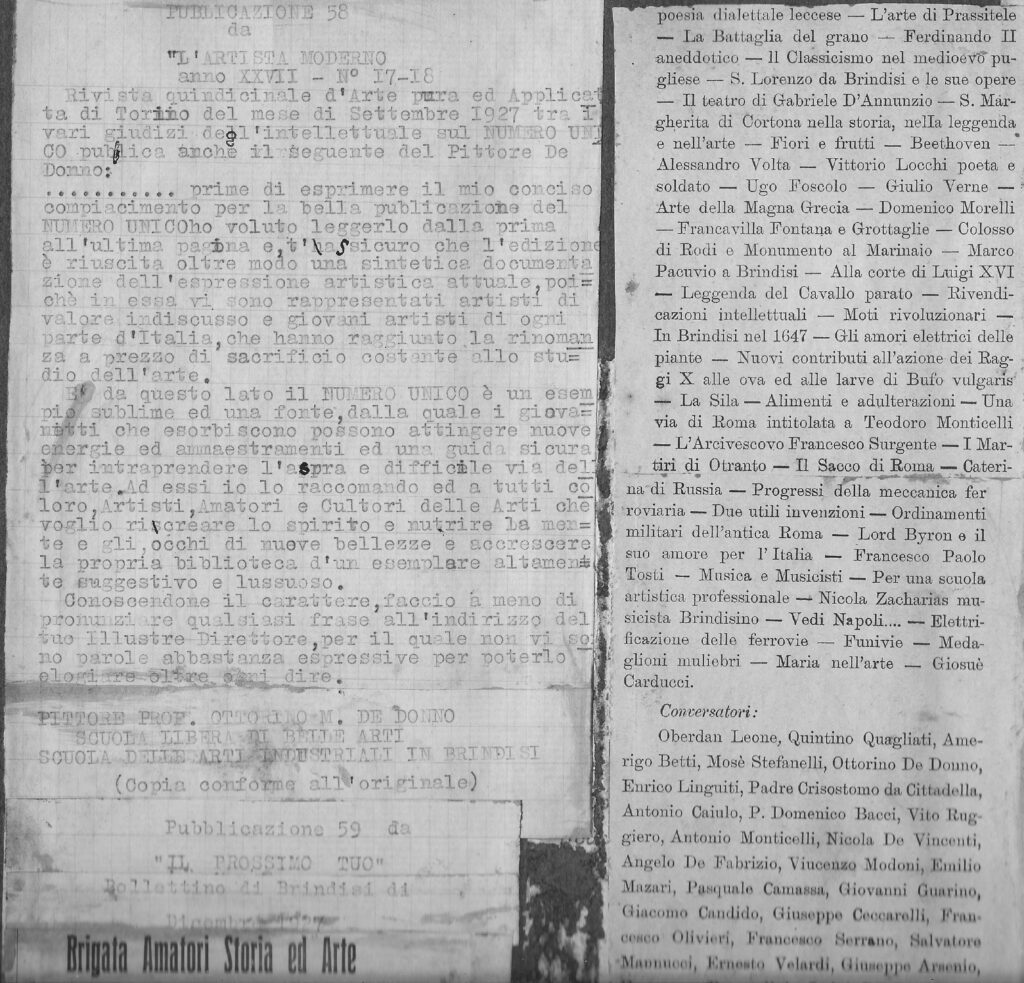 PUBLICAZIONE 58
da
"L'ARTISTA MODERNO
anno XXVII - N° 17-18
Rivista quindicinale d'Arte pura ed Applicat
ta di Torino del mese di Settembre 1927 tra i
vari giudizi degl'intellettuale sul NUMERO UNI
CO publica anche il seguente del Pittore De
Donno:
........... prime di esprimere il mio conciso
compiacimento per la bella publicazione del
NUMERO UNICOho voluto leggerlo dalla prima
all'ultima pagina e,t'assicuro che l'edizione
è riuscita oltre modo una sintetica documenta
zione dell'espressione artistica attuale,poi=
chè in essa vi sono rappresentati artisti di
valore indiscusso e giovani artisti di ogni
parte d'Italia,che hanno raggiunto la rinoman
za a prezzo di sacrificio costante allo stu=
dio dell'arte.
E' da questo lato il NUMERO UNICO è un esem
pio sublime ed una fonte,dalla quale i giova=
notti che esorbiscono possono attingere nuove
energie ed ammaestramenti ed una guida sicura
per intraprendere l'aspra e difficile via del
l'arte.Ad essi io lo raccomando ed a tutti co
loro,Artisti,Amatori e Cultori delle Arti che
voglio ricreare lo spirito e nutrire la men=
te e gli,occhi di nuove bellezze e accrescere
la propria biblioteca d'un esemplare altamen=
te suggestivo e lussuoso.
Conoscendone il carattere,faccio a meno di
pronunziare qualsiasi frase all'indirizzo del
tuo Illustre Direttore,per il quale non vi so
no parole abbastanza espressive per poterlo
elogiare oltre ogni dire.
PITTORE PROF. OTTORINO M. DE DONNO
SCUOLA LIBERA DI BELLE ARTI
SCUOLA DELLE ARTI INDUSTRIALI IN BRINDISI
(Copia conforme all'originale)
Pubblicazione 59 da
"IL PROSSIMO TUO"
Bollettino di Brindisi di
Dicembre 1927
Brigata Amatori Storia ed Arte
poesia dialettale leccese — L'arte di Prassitele
— La Battaglia del grano — Ferdinando II
aneddotico — Il Classicismo nel medioevo pu-
gliese — S. Lorenzo da Brindisi e le sue opere
— Il teatro di Gabriele D'Annunzio — S. Mar-
gherita di Cortona nella storia, nella leggenda
e nell'arte — Fiori e frutti — Beethoven —
Alessandro Volta — Vittorio Locchi poeta e
soldato — Ugo Foscolo — Giulio Verne —
Arte della Magna Grecia — Domenico Morelli
— Francavilla Fontana e Grottaglie — Colosso
di Rodi e Monumento al Marinaio — Marco
Pacuvio a Brindisi — Alla corte di Luigi XVI
— Leggenda del Cavallo parato — Rivendi-
cazioni intellettuali — Moti rivoluzionari —
In Brindisi nel 1647 — Gli amori elettrici delle
piante — Nuovi contributi all'azione dei Rag-
gi X alle ova ed alle larve di Bufo vulgaris
— La Sila — Alimenti e adulterazioni — Una
via di Roma intitolata a Teodoro Monticelli
— L'Arcivescovo Francesco Surgente — I Mar-
tiri di Otranto — Il Sacco di Roma — Cateri-
na di Russia — Progressi della meccanica fer
roviaria — Due utili invenzioni — Ordinamenti
militari dell'antica Roma — Lord Byron e il
suo amore per l'Italia — Francesco Paolo
Tosti — Musica e Musicisti — Per una scuola
artistica professionale — Nicola Zacharias mu-
sicista Brindisino — Vedi Napoli.... — Elettri-
ficazione delle ferrovie — Funivie — Meda-
glioni muliebri — Maria nell'arte — Giosuè
Carducci.
Conversatori:
Oberdan Leone, Quintino Quagliati, Ame-
rigo Betti, Mosè Stefanelli, Ottorino De Donno,
Enrico Linguiti, Padre Crisostomo da Cittadella,
Antonio Caiulo, P. Domenico Bacci, Vito Rug-
giero, Antonio Monticelli, Nicola De Vincenti,
Angelo De Fabrizio, Vincenzo Modoni, Emilio
Mazari, Pasquale Camassa, Giovanni Guarino,
Giacomo Candido, Giuseppe Ceccarelli, Fran-
cesco Olivieri, Francesco Serrano, Salvatore
Mannucci, Ernesto Velardi, Giuseppe Arsenio,